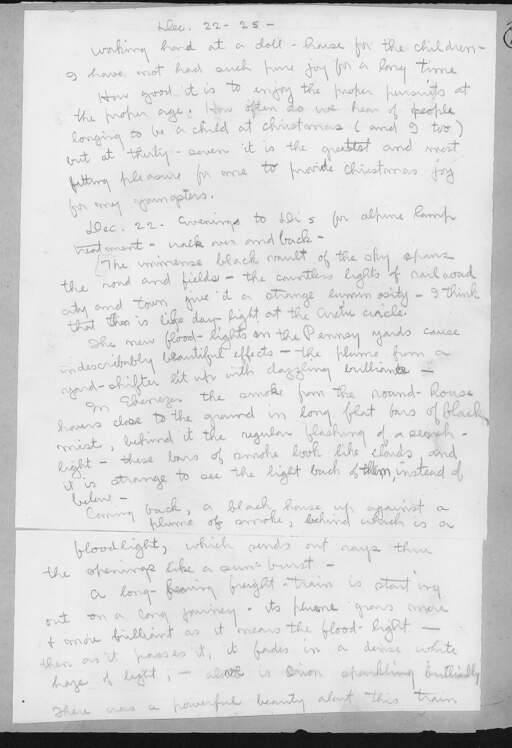 Dec. 22 - 25 -
working hard at a doll-house for the children -
I have not had such pure joy for a long time
How good it is to enjoy the proper pursuits at
the proper age. How often do we hear of people
longing to be a child at christmas (and I too)
but at thirty-seven it is the greatest and most
fitting pleasure for me to provide Christmas joy
for my youngsters.
Dec. 22. Evenings to Di's for alpine lamp
treatment - walk over and back -
The immense black vault of the sky spans
the road and fields - the countless lights of railroad
city and town give it a strange luminosity - I think
that this is like day-light at the arctic circle.
The new flood-lights on the Pennsy yards cause
indescribably beautiful effects - the plume from a
yard-shifter lit up with dazzling brilliance -
In Ebenezer the smoke from the round-house
hovers close to the ground in long flat bars of black
mist, behind it the regular flashing of a search-
light - these bars of smoke look like clouds, and
it is strange to see the light back of them, instead of
below -
Coming back, a black house up against a
plume of smoke, behind which is a
floodlight, which sends out rays thru
the openings like a sun-burst -
a long freight-train is starting
out on a long journey - its plume grows more
+ more brilliant as it nears the flood-light -
then as it passes it, it fades in a dense white
haze of light, - above is Orion sparkling brilliantly
There was a powerful beauty about this train